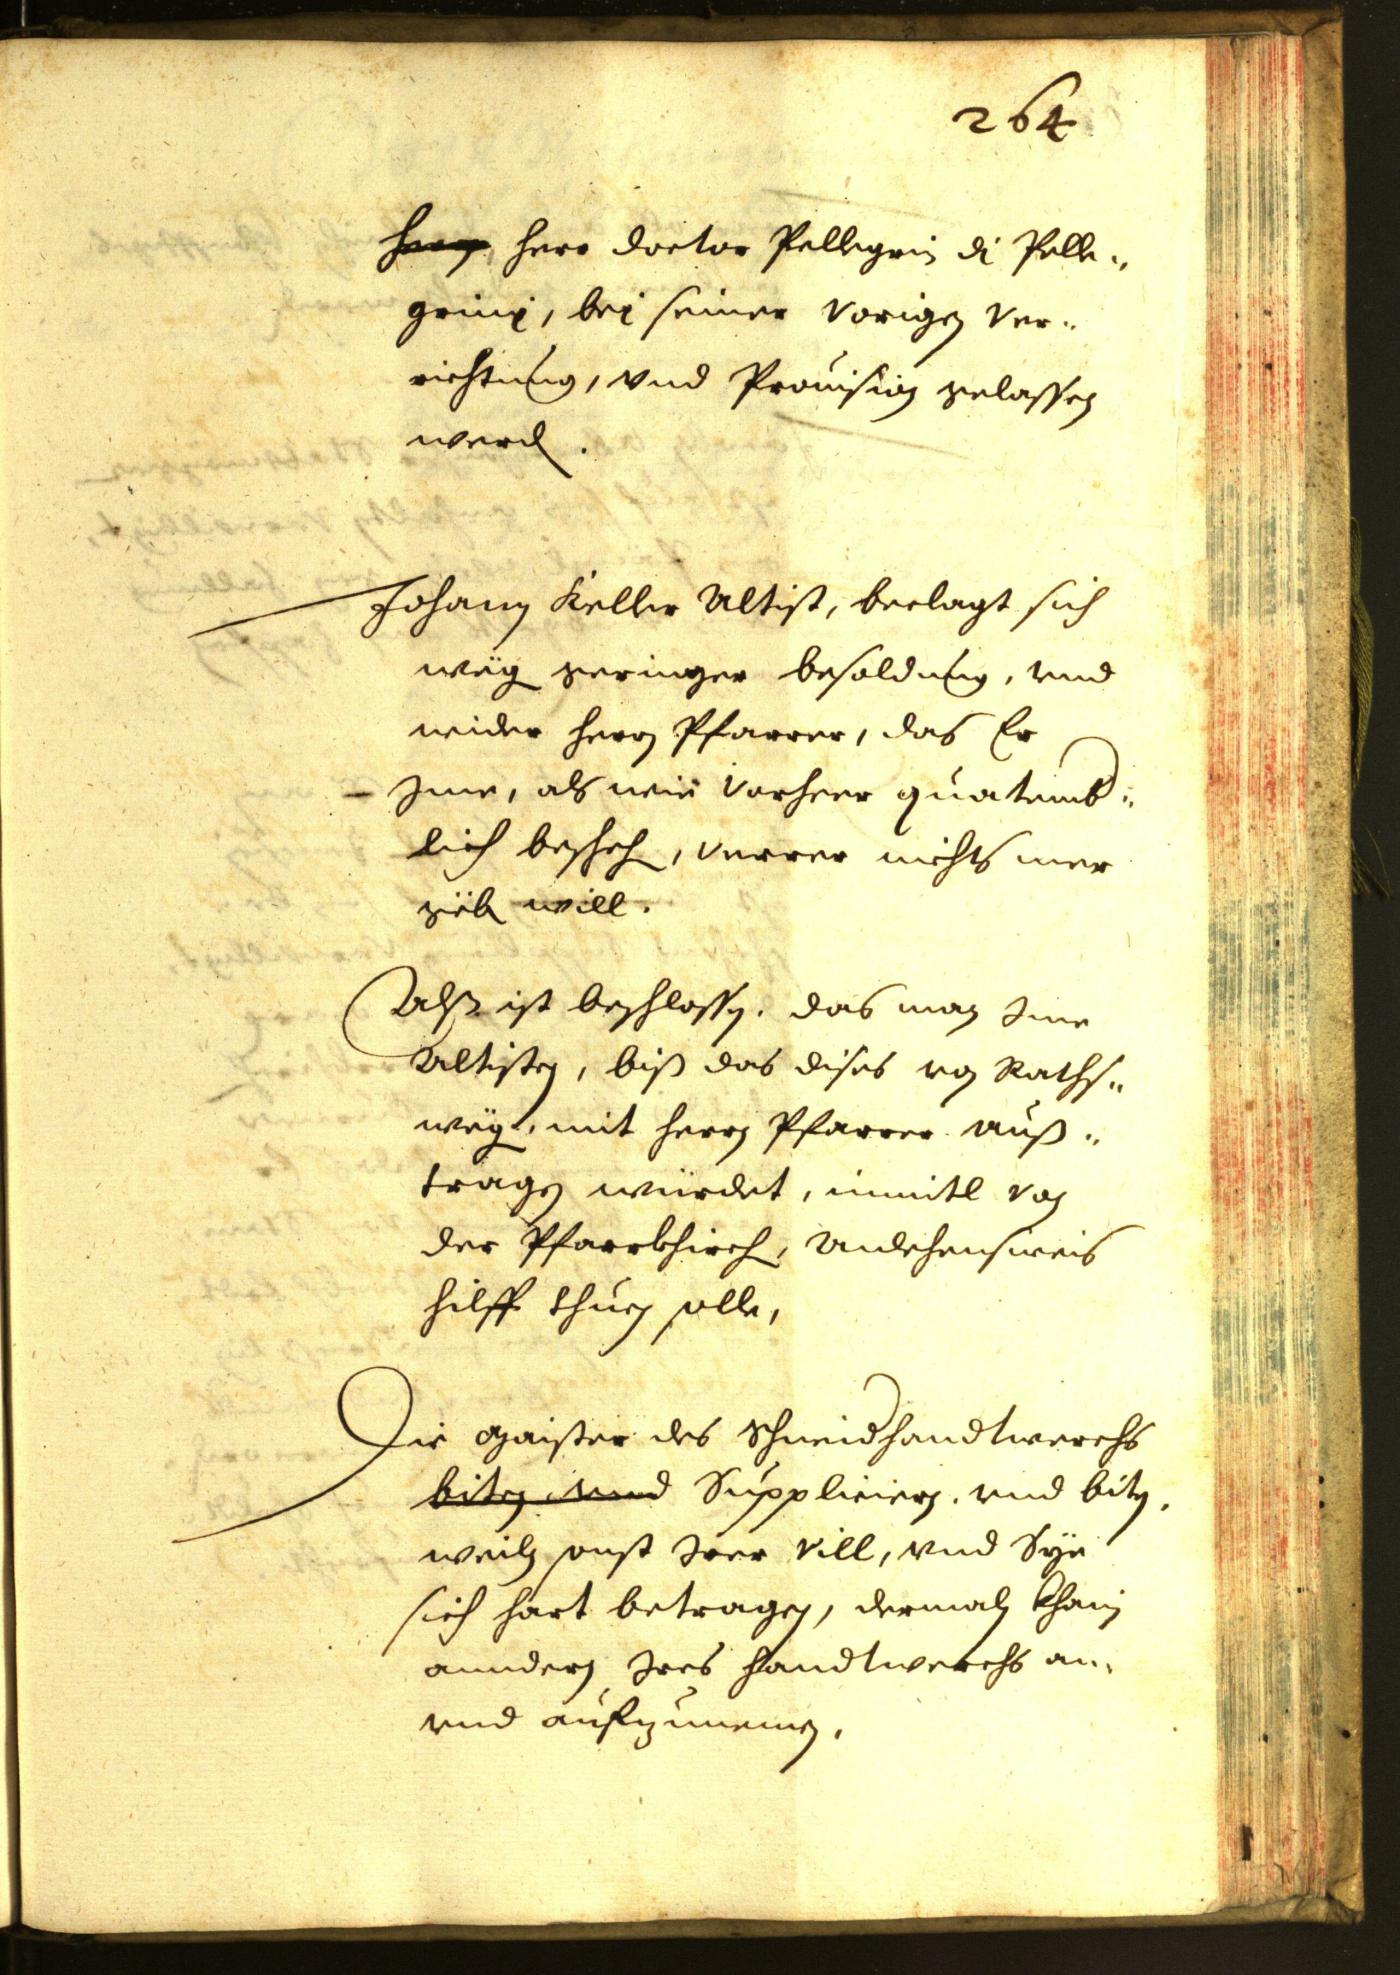 264
herrn, herr doctor Pellegrin di Pelle„
grini, bei seiner vorigen ver„
richtung, vnd Prouision gelassen
werd.
Johann Keller Altist, beclagt sich
weg geringer besoldung, vnd
wider herrn Pfarrer, das Er
Ime, als wie vorheer quatemb„
lich bescheh, verrer nichts mer
geb will.
Alß ist beschlossen. das man Ime
Altisten, biß das dises von Raths„
weg, mit herrn Pfarrer auß„
tragen würdet, inmitl von
der Pfarrkhirch, Anlehensweis
hilff thuen solle,
Die Maister des Schneidhandtwerchs
biten vnd Supplicieren. vnd biten,
weiln sonst Irer vill, vnd Sye
sich hart betragen, dermaln khain
anndern Ires handtwerchs an,
vnd aufzunemen,